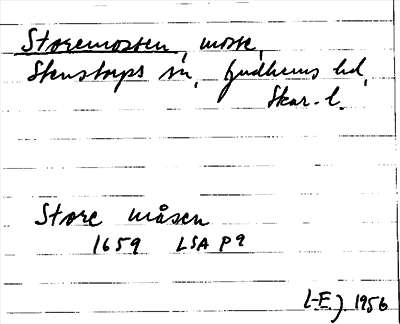 Storemossen, mosse,
Stenstorps sn, Gudhems hd,
Skar. l.
Store måsen
1659 LSA P9
L-E.J 1956